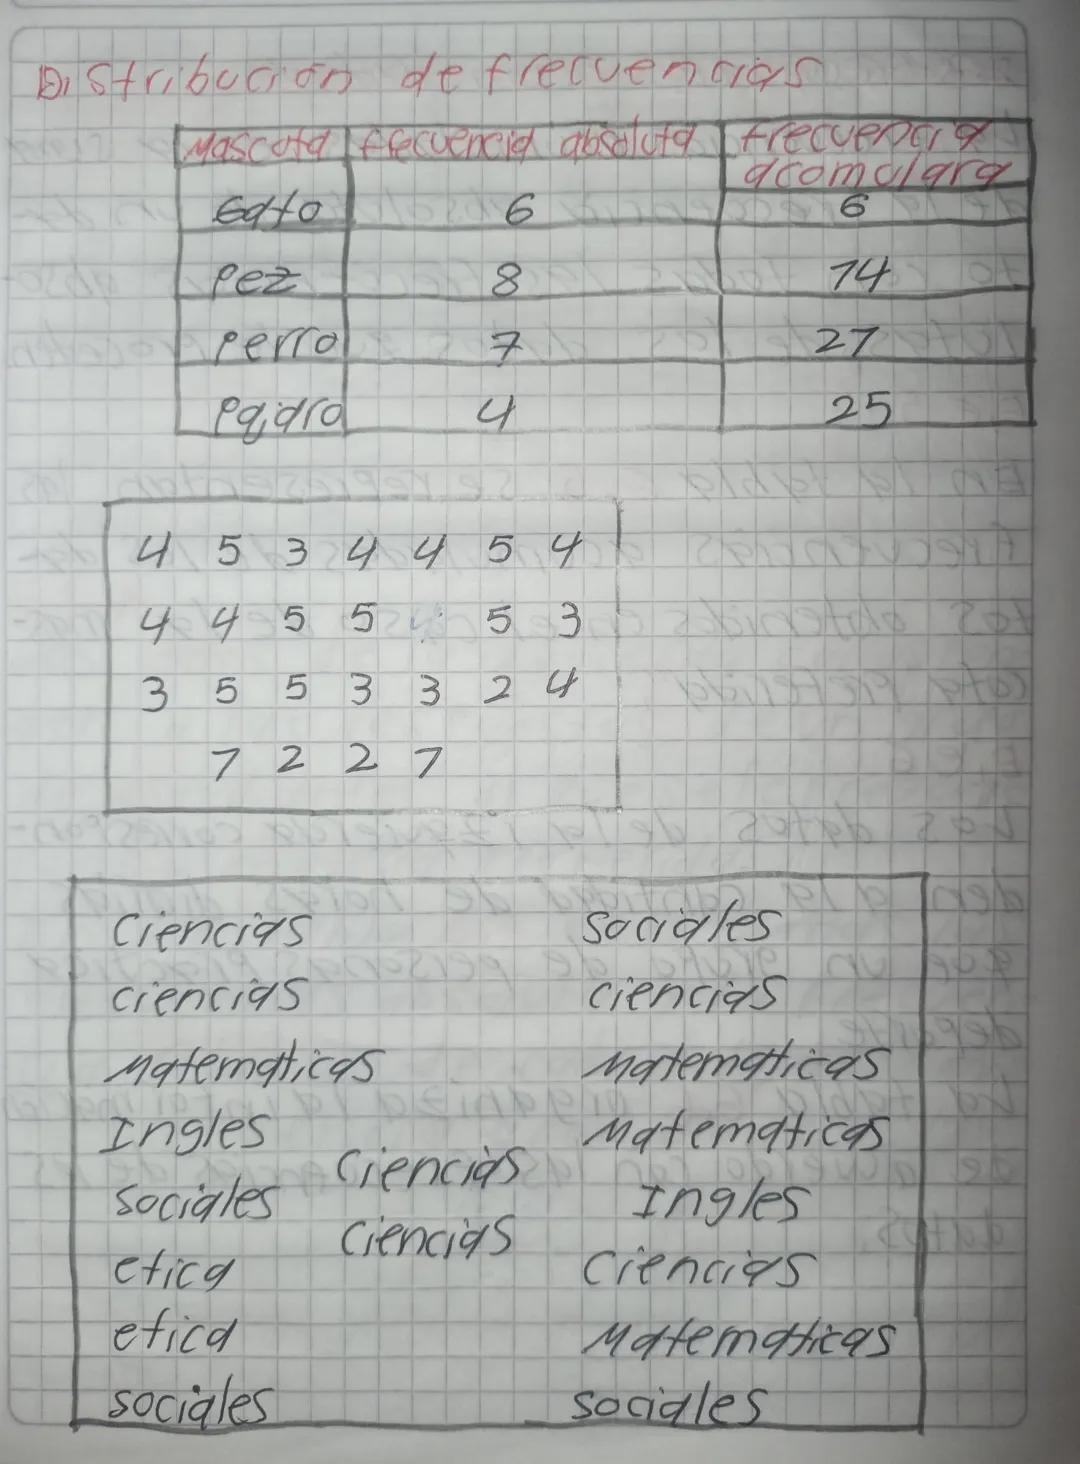 Distribución de frecuencias
Mascota frecuencia absoluta frecuencia
acomulara
Gato 6 6
pez 8 14
perro 7 21
pajaro 4 25
4 5 3 4 4 5 4
4 4 5 5 5 3
3 5 5 3 3 2 4
1 2 2 1
Ciencias sociales
ciencias ciencias
Matematicas Matematicas
Ingles Matematicas
Ciencias
sociales Ingles
Ciencias
etica Ciencias
etica Matematicas
sociales sociales